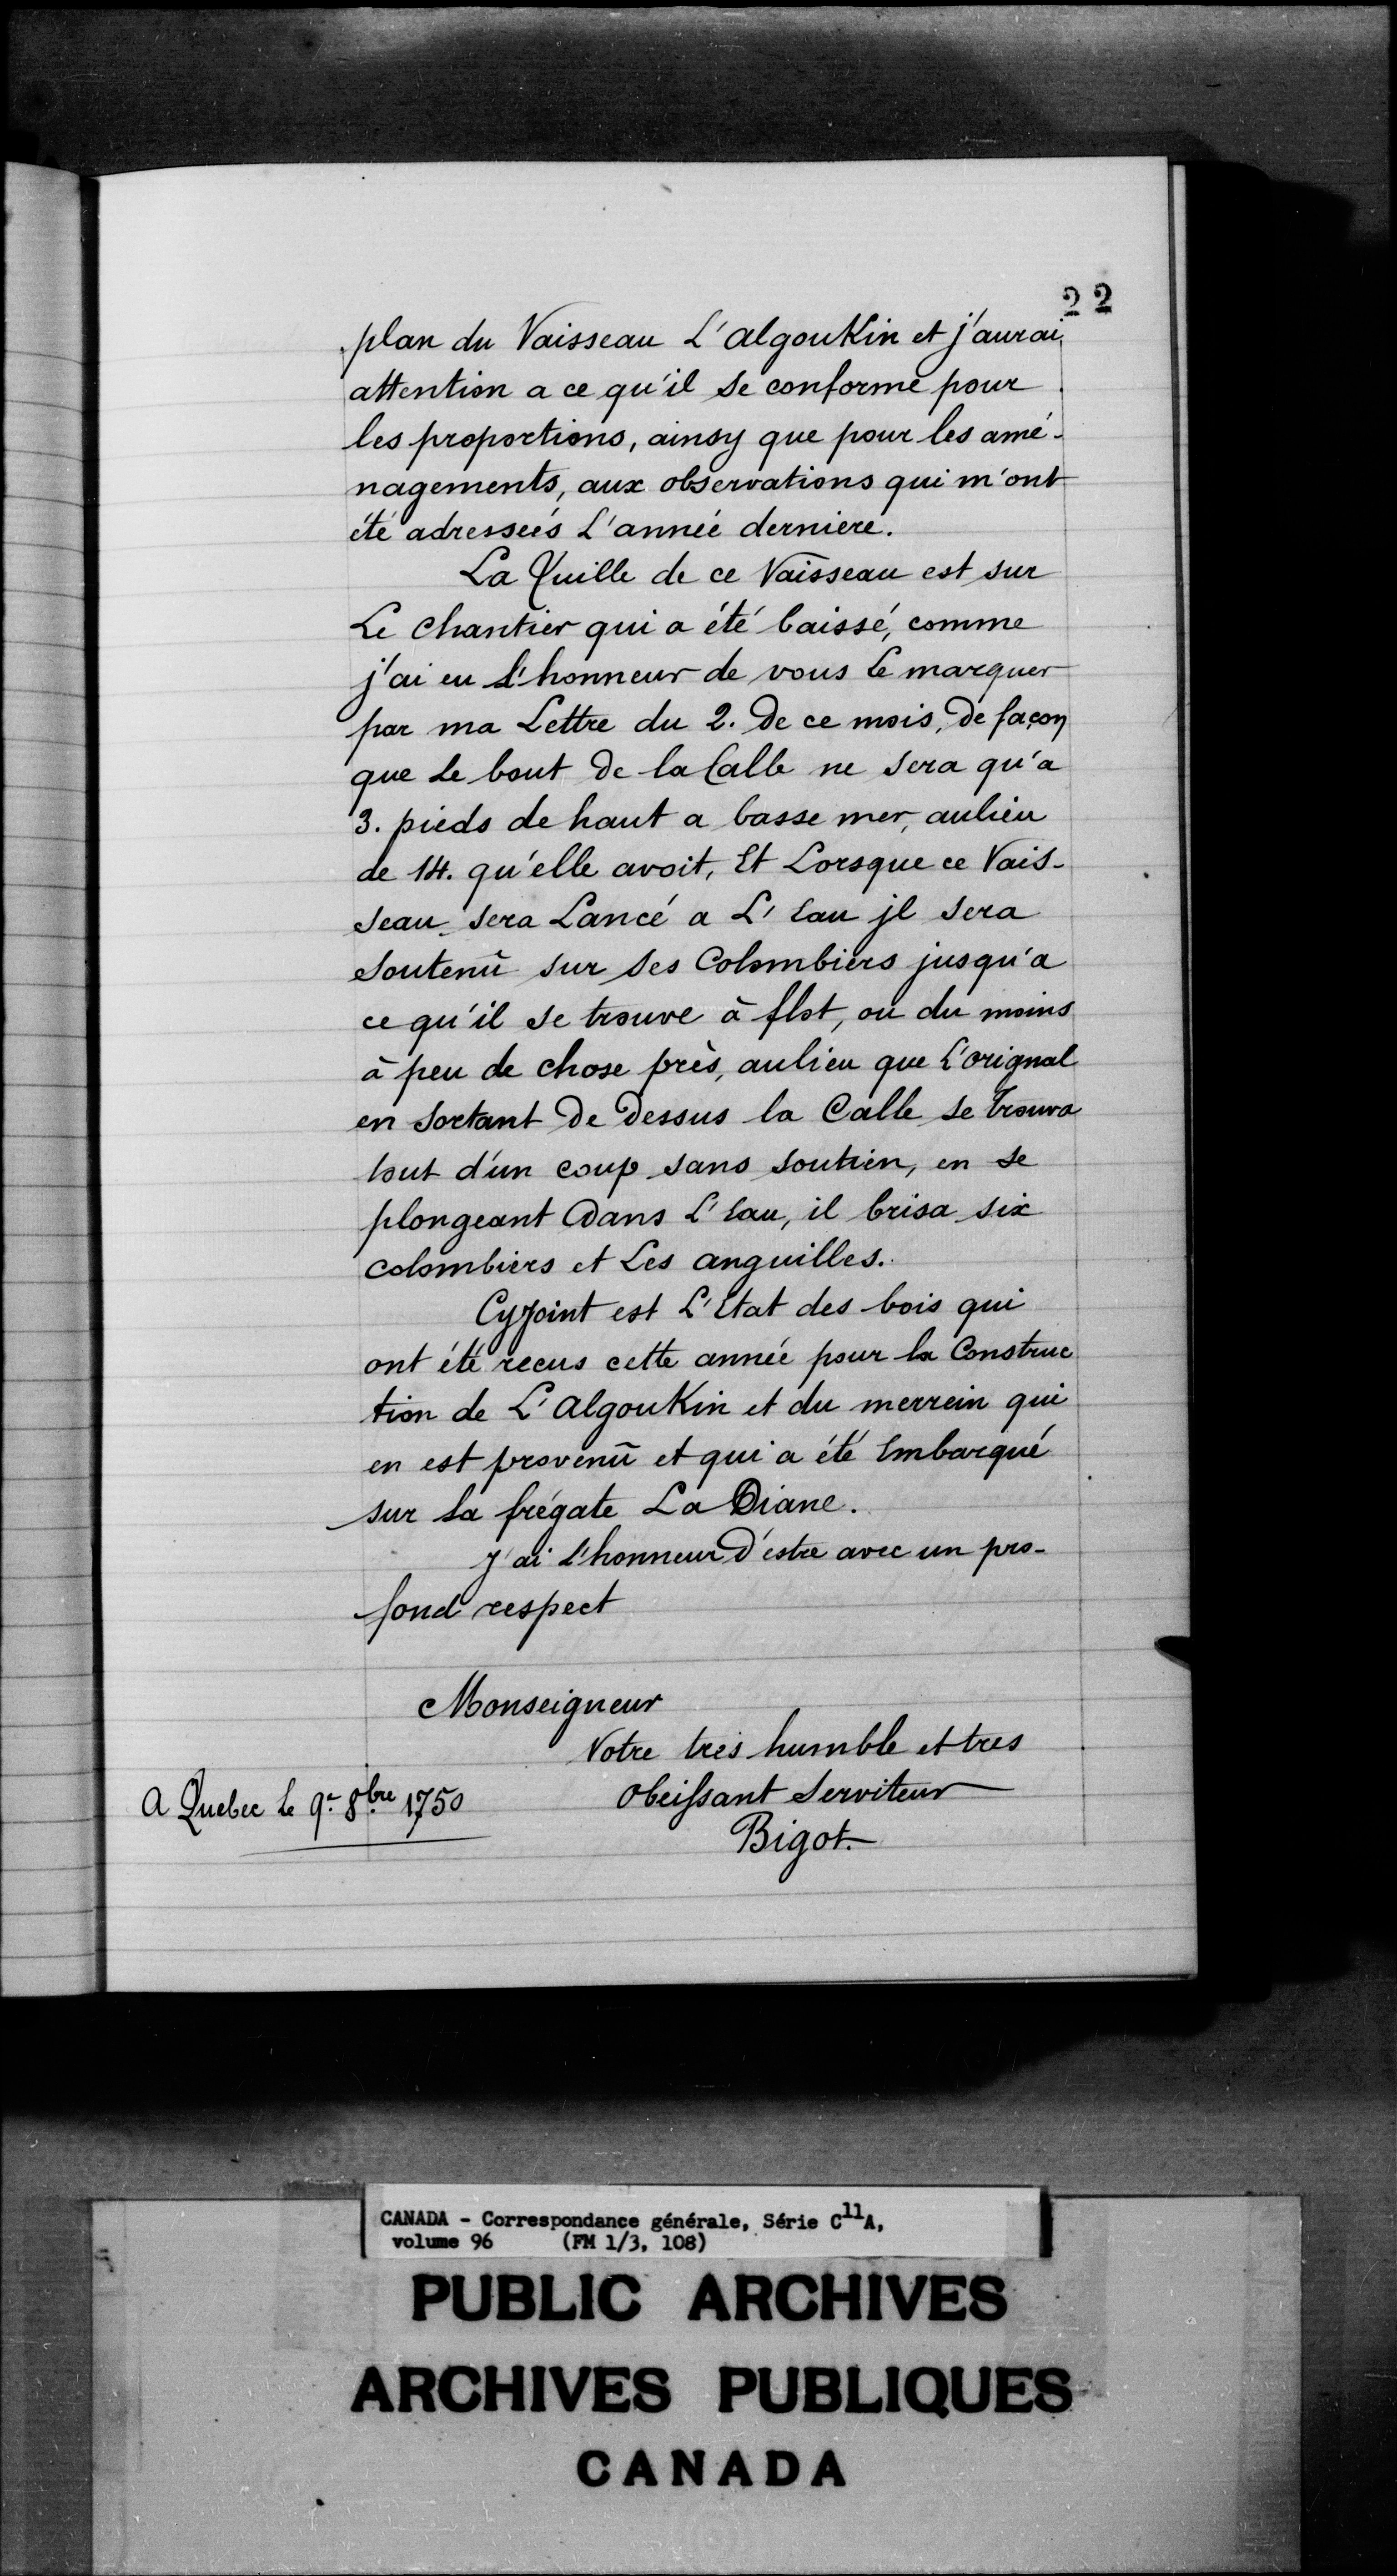 22
plan du Vaisseau L'algouKin et j'aurai
attention a ce qu'il se conforme pour
les proportions, ainsy que pour les amé-
nagements, aux observations qui m'ont
été adressées L'année derniere.
La Quille de ce Vaisseau est sur
Le chantier qui a été baissé, comme
j'ai eu l'honneur de vous le marquer
par ma Lettre du 2. de ce mois, de façon
que le bout de la Calle ne sera qu'a
3. pieds de haut a basse mer, aulieu
de 14. qu'elle avoit, Et Lorsque ce Vais-
seau sera Lancé a L'Eau jl sera
soutenû sur ses Colombiers jusqu'a
ce qu'il se trouve à flot, ou du moins
à peu de chose près, aulieu que L'orignal
en sortant de dessus la Calle se trouva
tout d'un coup sans soutien, en se
plongeant dans L'Eau, il brisa six
colombiers et Les anguilles.
Cyjoint est L'Etat des bois qui
ont été recus cette année pour la Construc
tion de L'algouKin et du merrein qui
en est provenû et qui a été Embarqué
sur la frégate La Diane.
J'ai l'honneur d'estre avec un pro-
fond respect
Monseigneur
Votre très humble et tres
obeissant Serviteur
A Quebec le 9e 8bre 1750
Bigot.
CANADA - Correspondance générale, Série C11A,
volume 96 (FM 1/3, 108)
PUBLIC ARCHIVES
ARCHIVES PUBLIQUES
CANADA